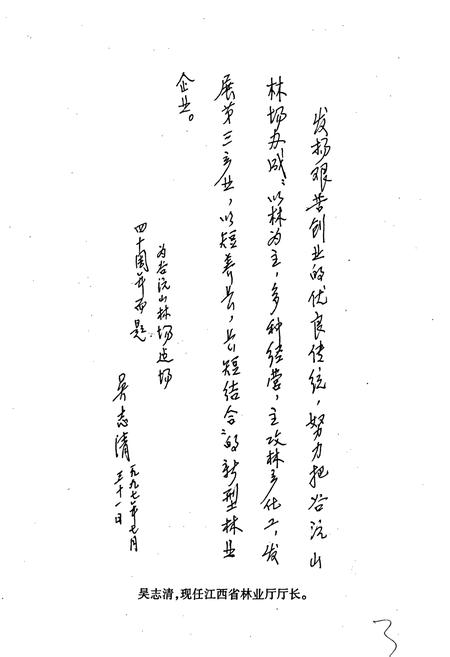 发扬艰苦创业的优良传统，努力把谷沅山
林场办成“以林为主，多种经营，主攻林产化工，发
展第三产业，以短养长，长短结合”的新型林业
企业。
为谷沅山林场建场
四十周年而题
吴志清
一九九七年七月
三十一日
吴志清，现任江西省林业厅厅长。
3